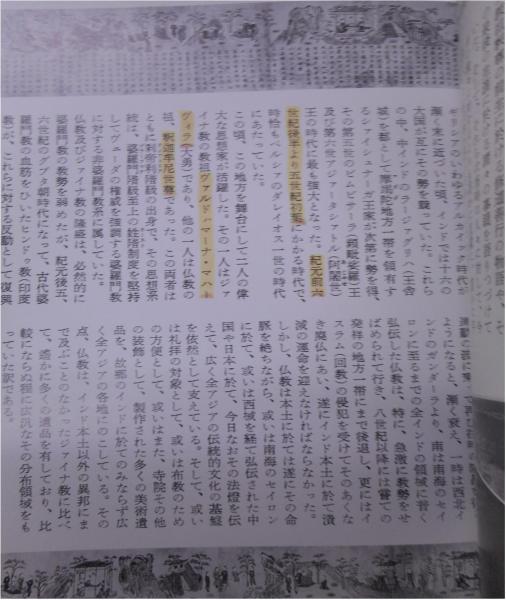 ギリシアのいわゆるアルカイック時代が
漸く末に近づいた頃、インドでは十六の
大国が互にその勢を競っていた。これら
の中、中インドのラージャグリハ（王舎
城）を都として摩竭陀地方一帯を領有す
るシャイシュナーガ王家が次第に勢を得、
その第五世のビムビサーラ（頻毗娑羅）王
及び第六世アジャータシャトル（阿闍世）
王の時代に最も強大となった。紀元前六
世紀後半より五世紀初頭にかかる時代で、
時恰もペルシアのダレイオス一世の時代
にあたっていた。
この頃、この地方を舞台にして二人の偉
大な思想家が活躍した。その一人はジァ
イナ教の教祖ヴァルドハマーナ・マハー
ヴィラ（大勇）であり、他の一人は仏教の
祖、釈迦牟尼世尊であった。この両者は
ともに刹帝利階級の出身で、その思想系
統は、婆羅門階級至上の姓階制度を堅持
してヴェーダの権威を強調する婆羅門教
に対する非婆羅門教系に属していた。
仏教及びジァイナ教の隆盛は、必然的に
婆羅門教の教勢を弱めたが、紀元後五、
六世紀のグプタ朝時代になって、古代婆
羅門教の血肪をひいたヒンドゥ教（印度
教）が、これらに対する反動として復興
ようになると、漸く衰え、一時は西北イ
ンドのガンダーラより、南は南海のセイ
ロンに至るまでの全インドの領域に普く
弘伝した仏教は、特に、急激に教勢をせ
ばめられて行き、八世紀以降には嘗ての
発祥の地方一帯にまで後退し、更にはイ
スラム（回教）の侵犯を受けてそのあくな
き廃仏にあい、遂にインド本土に於て潰
滅の運命を迎えなければならなかった。
しかし、仏教は本土に於ては遂にその命
脈を絶ちながら、或いは南海のセイロン
に於て、或いは西域を経て弘伝された中
国や日本に於て、今日なおその法燈を伝
えて、広く全アジアの伝統的文化の基盤
を依然として支えている。そして、或い
は礼拝の対象として、或いは布教のため
の方便として、或いはまた、寺院その他
の装飾として、製作された多くの美術遺
品を、故郷のインドに於てのみならず広
く全アジアの各地にのこしている。その
点、仏教は、インド本土以外の異邦にま
で及ぶことのなかったジァイナ教に比べ
て、遥かに多くの遺品を有しており、比
較にならぬ程に広汎なその分布領域をも
っていた訳である。